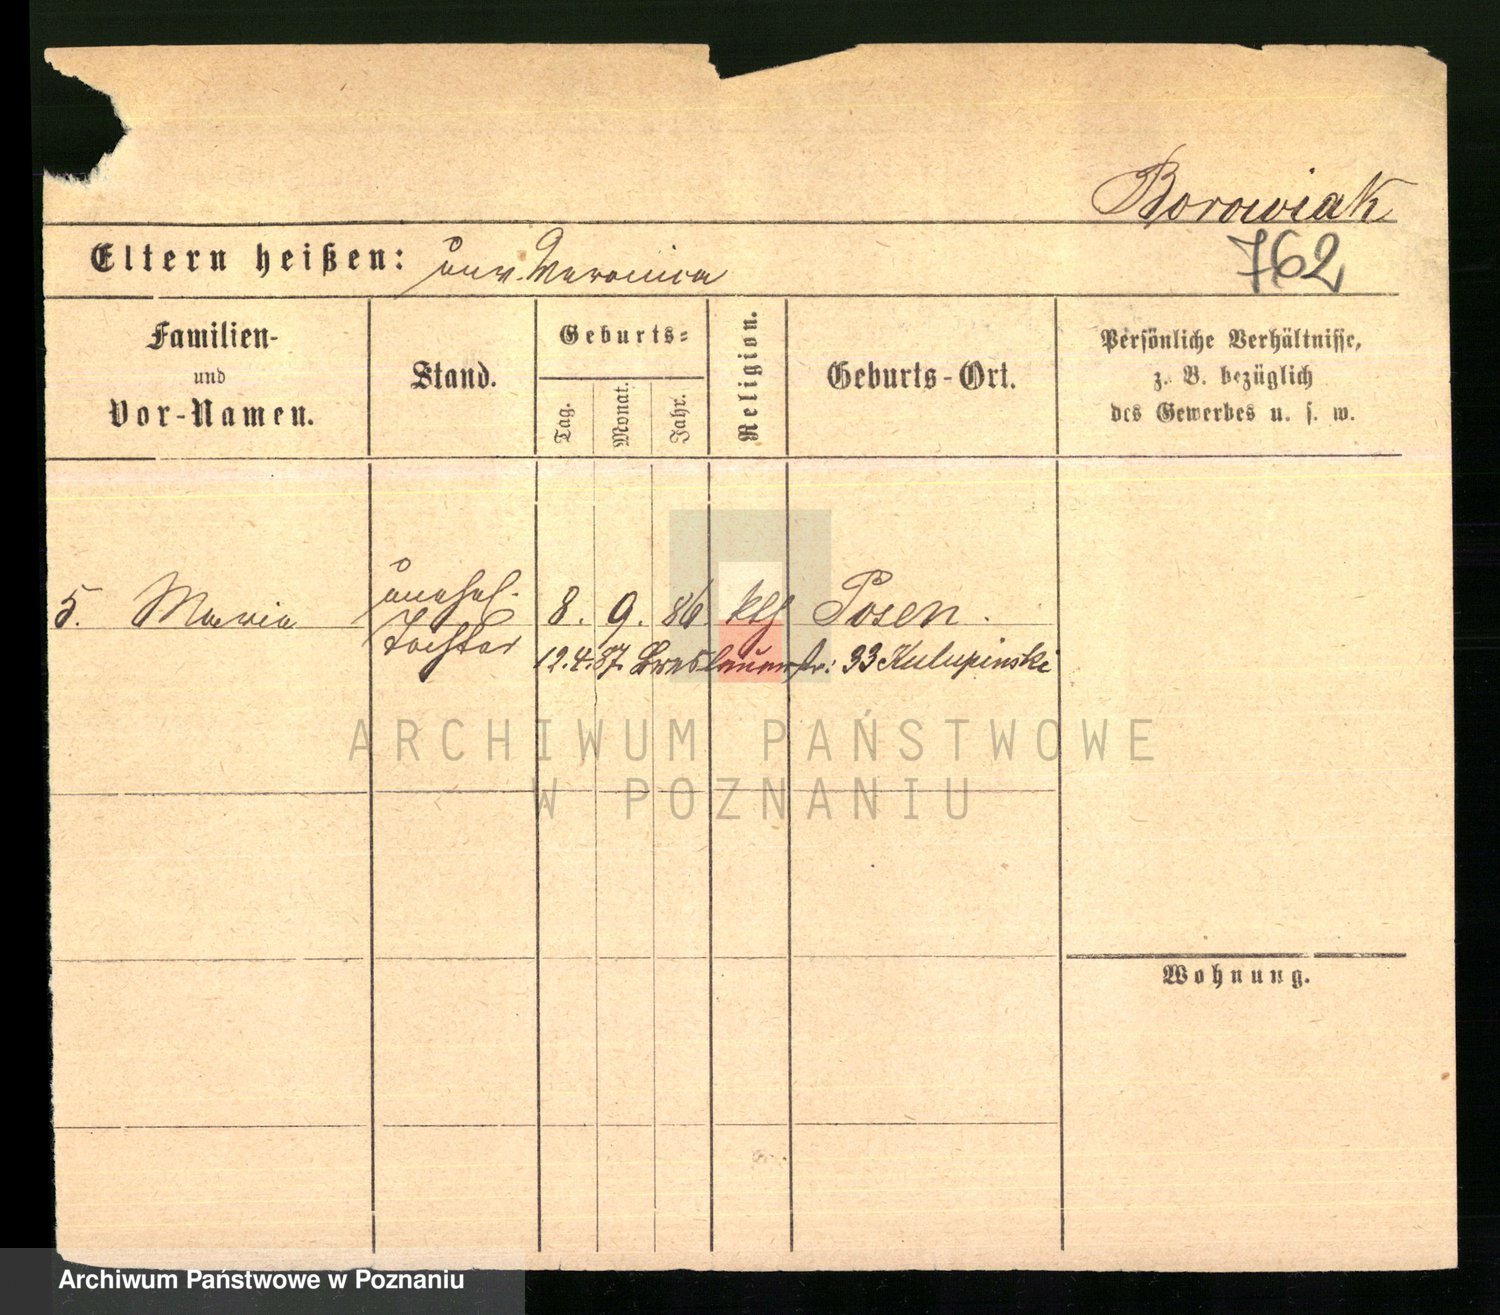 Borowiak
762
Eltern heißen: unv. Veronica
Familien-
und
Vor-Namen.
Stand.
Geburts-
Tag.
Monat.
Jahr.
Religion.
Geburts-Ort.
Persönliche Verhältnisse,
z. B. bezüglich
des Gewerbes u. s. w.
5. Maria
unehel.
Tochter
8. 9. 86 kth Posen.
12.4.87. Breslauerstr: 33 Kulupinski
ARCHIWUM PAŃSTWOWE
W POZNANIU
Wohnung.
Archiwum Państwowe w Poznaniu